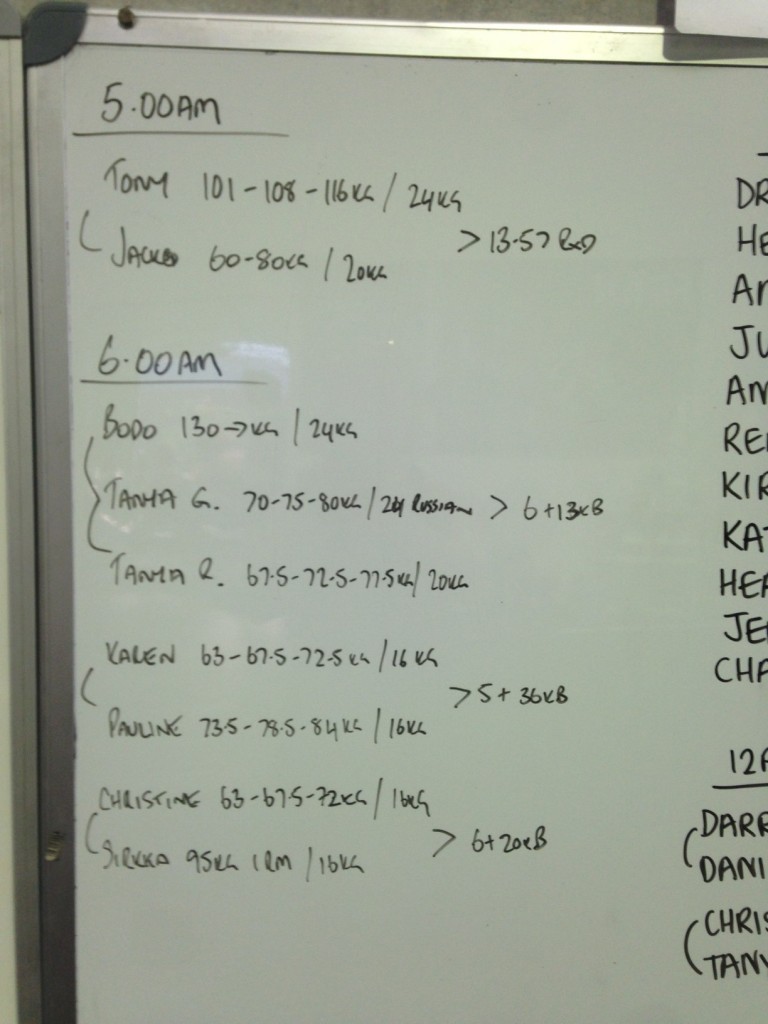 5.00AM
TONY 101-108-116KG / 24KG
60-80KG / 20KG
> 13.57 RxD
6.00AM
BODO 130→KG / 24KG
TANYA G. 70-75-80KG / 24 RUSSIAN > 6+13KB
TANYA R. 67.5-72.5-77.5KG / 20KG
KAREN 63-67.5-72.5KG / 16KG
> 5+36KB
PAULINE 73.5-78.5-84KG / 16KG
CHRISTINE 63-67.5-72KG / 16KG
> 6+20KB
SIRKKA 95KG 1RM / 16KG
DR
HE
JU
KIR
KAT
HEA
JE
CHA
12
DARR
DANI
CHRIS
TANY